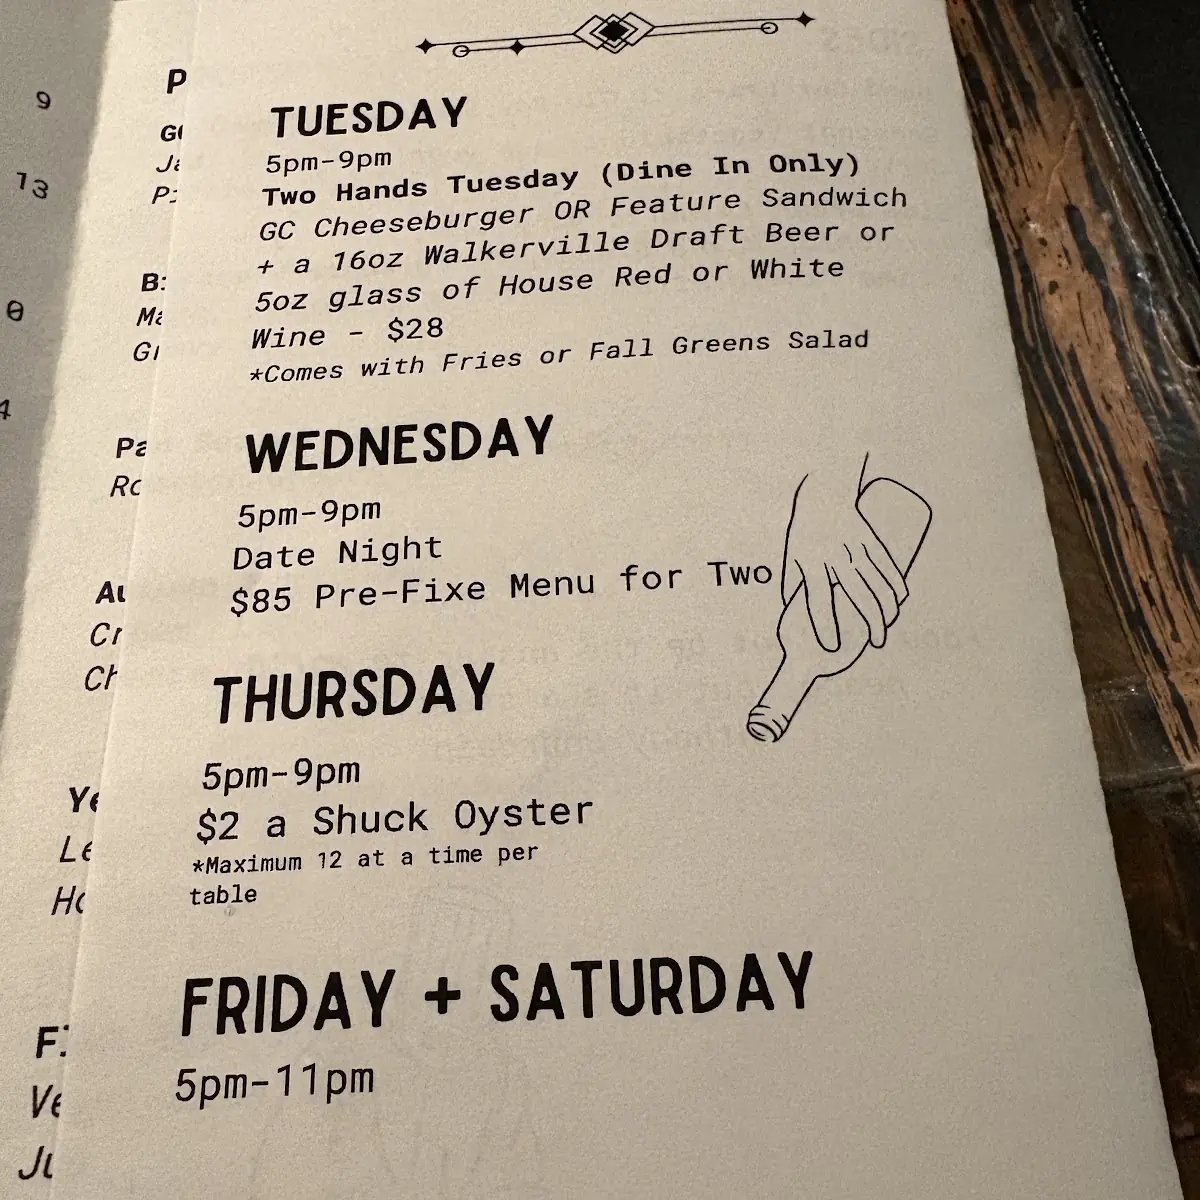 9
13
0
4
TUESDAY
5pm-9pm
Two Hands Tuesday (Dine In Only)
GC Cheeseburger OR Feature Sandwich
+ a 16oz Walkerville Draft Beer or
5oz glass of House Red or White
Wine - $28
*Comes with Fries or Fall Greens Salad
WEDNESDAY
5pm-9pm
Date Night
$85 Pre-Fixe Menu for Two
THURSDAY
5pm-9pm
$2 a Shuck Oyster
*Maximum 12 at a time per
table
FRIDAY + SATURDAY
5pm-11pm